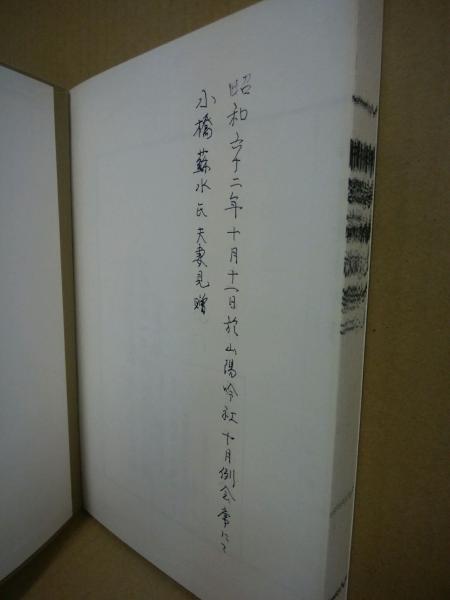 昭和六十二年十月十一日於山陽吟社十月例会常にて
小橋蘇水氏夫妻見贈